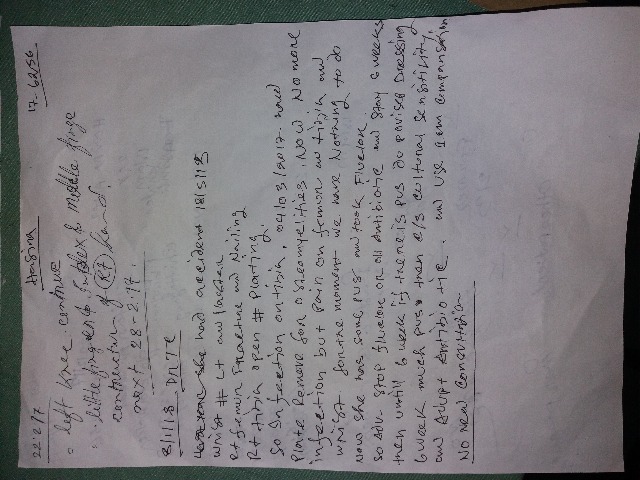 22.2.17 Hasina 17-6256
- left knee continue
- little finger & index & middle finge
contracture of (Rt) hand.
next 28.2.17.
8/1/18 DRTC
she had accident 18/5/15
wrist # Lt and plaster
Rt femur Fracture and Nailing
Rt tibia open # Plating.
So Infection on tibia, 04/03/2017 had
Plate Remove for osteomyelities. Now No more
infection but pain on femur and tibia and
wrist. for the moment we have Nothing to do
Now she has some pus and took Fluclox
so Adv. Stop fluclox or all Antibiotic and stay 6 weeks
then until 6 week if there is pus do Dressing
6 week much pus then c/s cultural sensitivity,
and Adapt Antibiotic. and use 1cm Compansation
No new Consultation